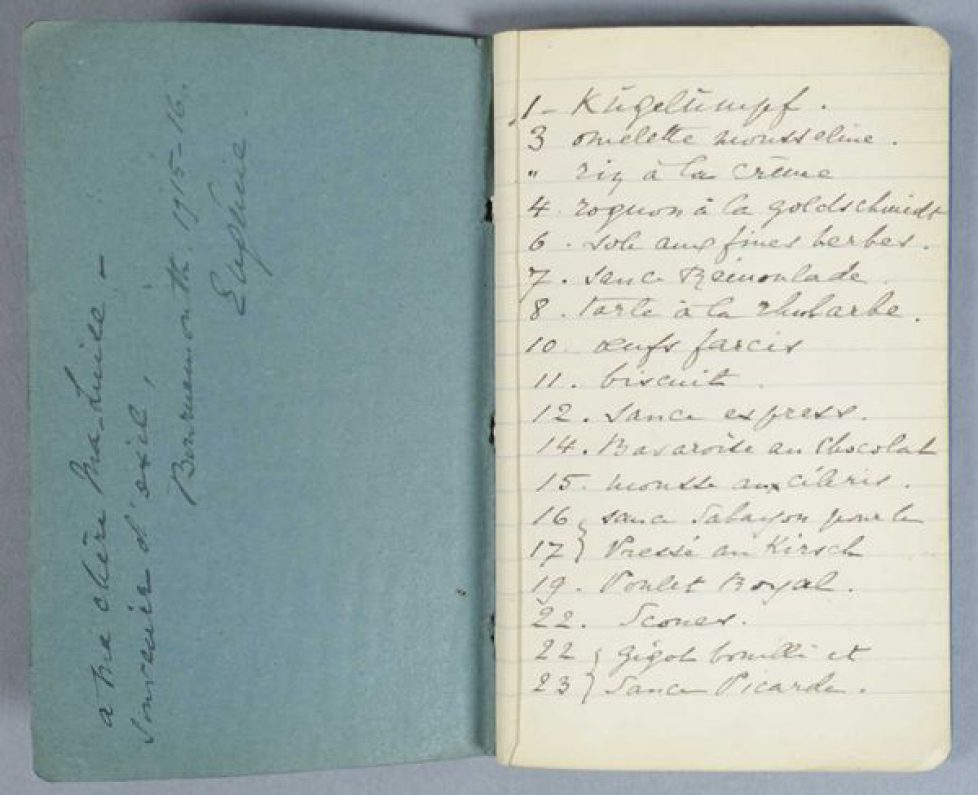 a ma chère Ma-Luise -
Souvenir d'exil,
Bournemouth. 1915-16.
Eugénie.
1 - Kügelümpf.
3 omelette mousseline.
" riz à la crème
4. rognon à la goldschmidt
6. sole aux fines herbes.
7. sauce Rémoulade.
8. tarte à la rhubarbe.
10. œufs farcis
11. biscuit.
12. sauce express.
14. Bavaroise au Chocolat
15. mousse aux céleris.
16 } sauce Sabayon pour le
17 } Pressé au Kirsch
19. Poulet Royal.
22. Scones.
22 } Gigot bouilli et
23 } Sauce Picarde.